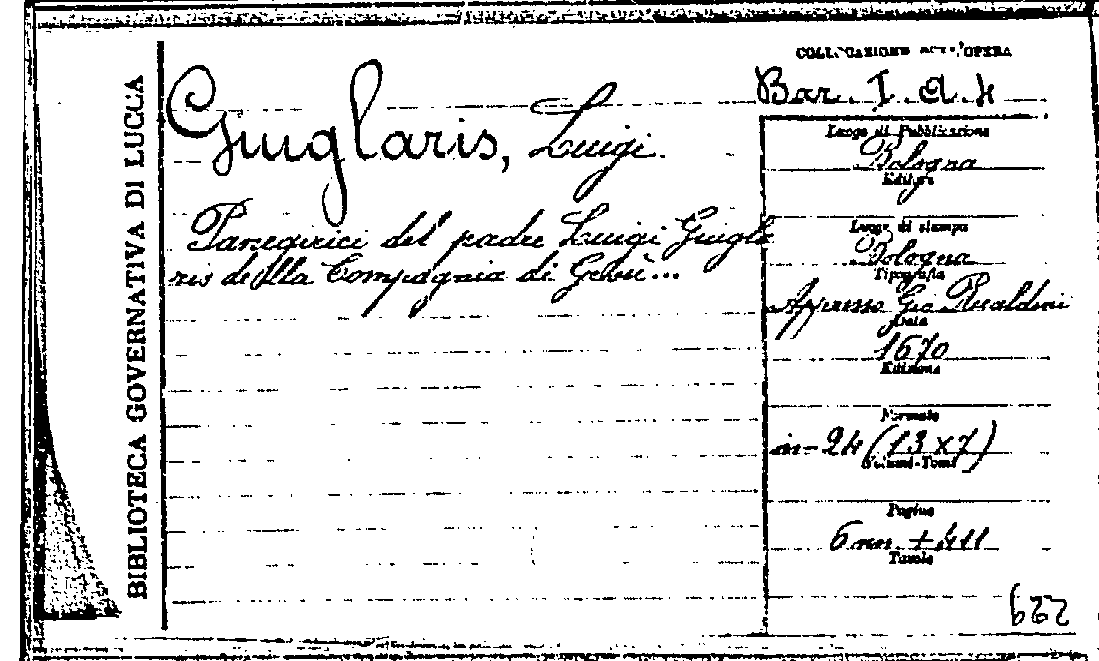 BIBLIOTECA GOVERNATIVA DI LUCCA
Giuglaris, Luigi.
Panegirici del padre Luigi Giugla
ris della Compagnia di Gesù...
COLLOCAZIONE DELL'OPERA
Bar. I. a. 4
Luogo di Pubblicazione
Bologna
Editore
Luogo di stampa
Bologna
Tipografia
Gio.
Data
1670
Edizione
Formato
in-24 (13x7)
Volumi-Tomi
Pagine
6 nn. + 411
Tavole